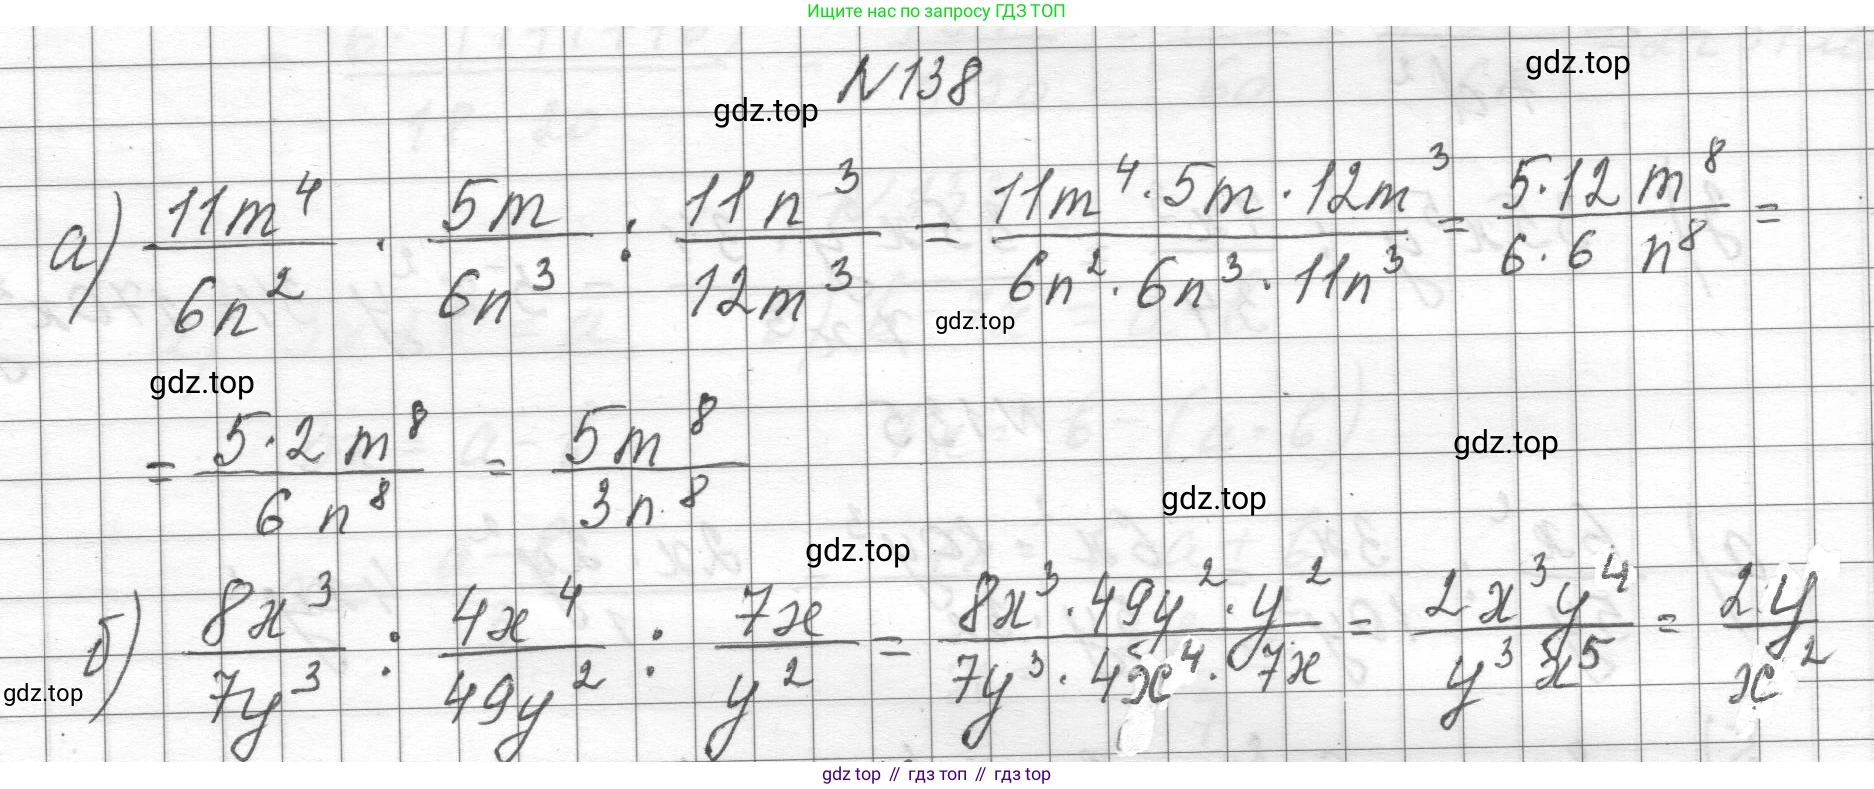 Ищите нас по запросу ГДЗ ТОП
N138
gdz.top
gdz.top
а) 11m⁴/6n² · 5m/6n³ : 11n³/12m³ = 11m⁴·5m·12m³/6n²·6n³·11n³ = 5·12m⁸/6·6 n⁸ =
gdz.top
gdz.top
= 5·2m⁸/6n⁸ = 5m⁸/3n⁸
gdz.top
gdz.top
gdz.top
б) 8x³/7y³ : 4x⁴/49y² : 7x/y² = 8x³·49y²·y²/7y³·4x⁴·7x = 2x³y⁴/y³x⁵ = 2y/x²
gdz.top
gdz top // гдз топ // гдз top